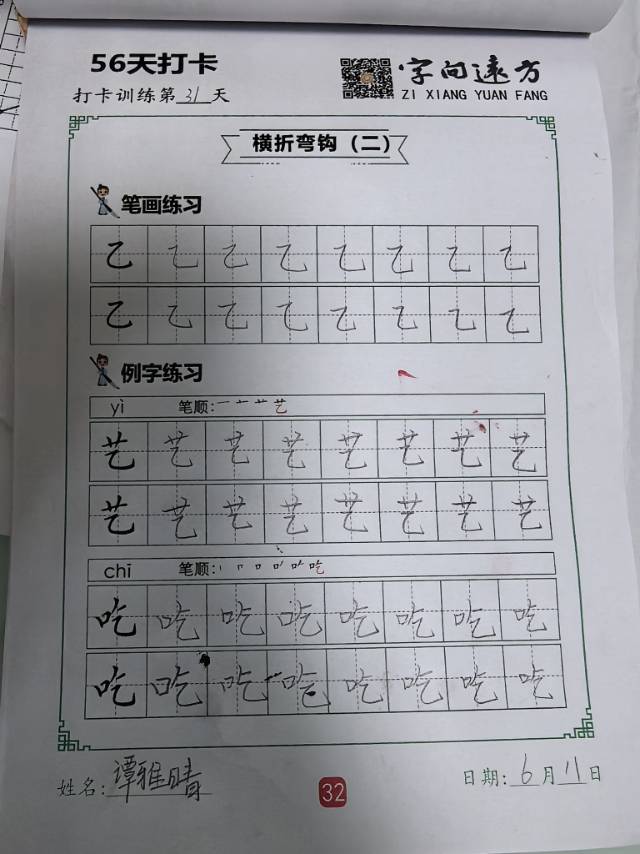 56天打卡
字向远方
打卡训练第31天
ZI XIANG YUAN FANG
横折弯钩（二）
笔画练习
乙 乙 乙 乙 乙 乙 乙 乙
乙 乙 乙 乙 乙 乙 乙 乙
例字练习
yì 笔顺:一 艹 艺
艺 艺 艺 艺 艺 艺 艺 艺
艺 艺 艺 艺 艺 艺 艺 艺
chī 笔顺:丨 口 吃
吃 吃 吃 吃 吃 吃 吃 吃
吃 吃 吃 吃 吃 吃 吃 吃
姓名:谭雅晴
32
日期:6月11日